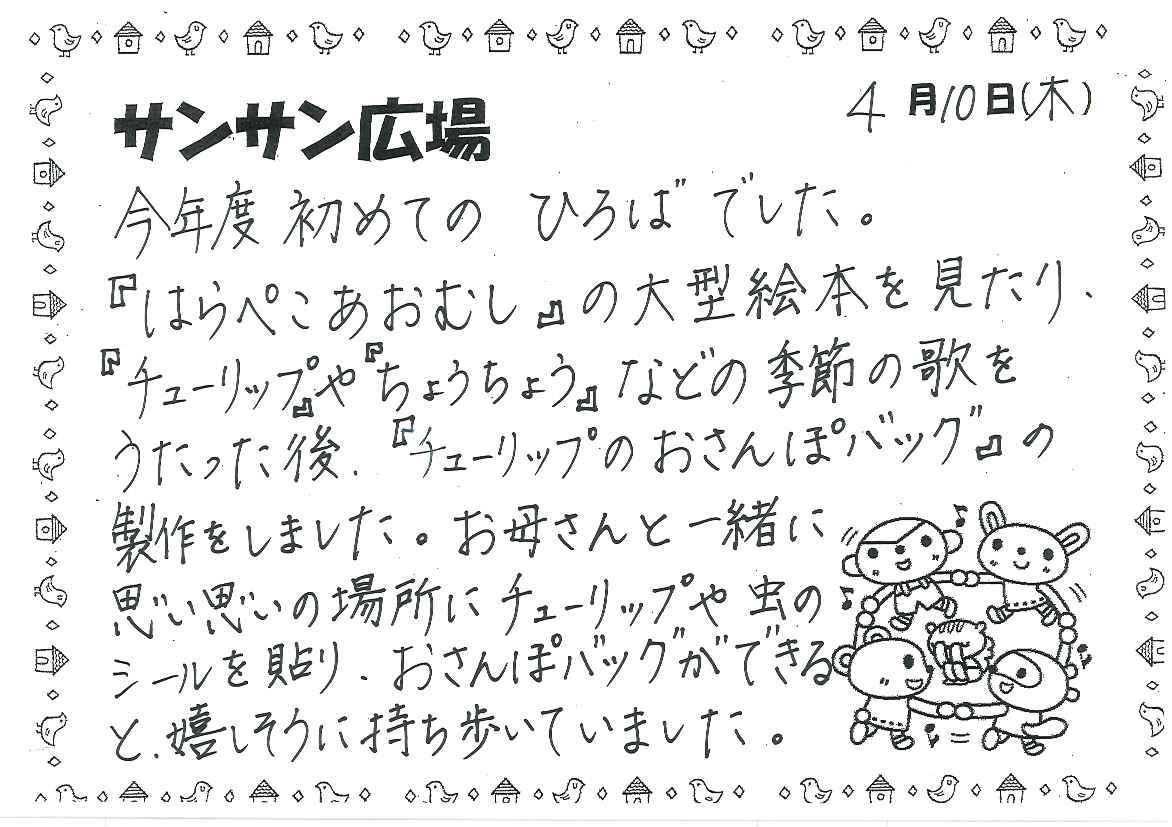 サンサン広場
4月10日(木)
今年度初めての ひろばでした。
『はらぺこあおむし』の大型絵本を見たり、
『チューリップ』や『ちょうちょう』などの季節の歌を
うたった後、『チューリップのおさんぽバッグ』の
製作をしました。お母さんと一緒に
思い思いの場所にチューリップや虫の
シールを貼り、おさんぽバッグができる
と、嬉しそうに持ち歩いていました。